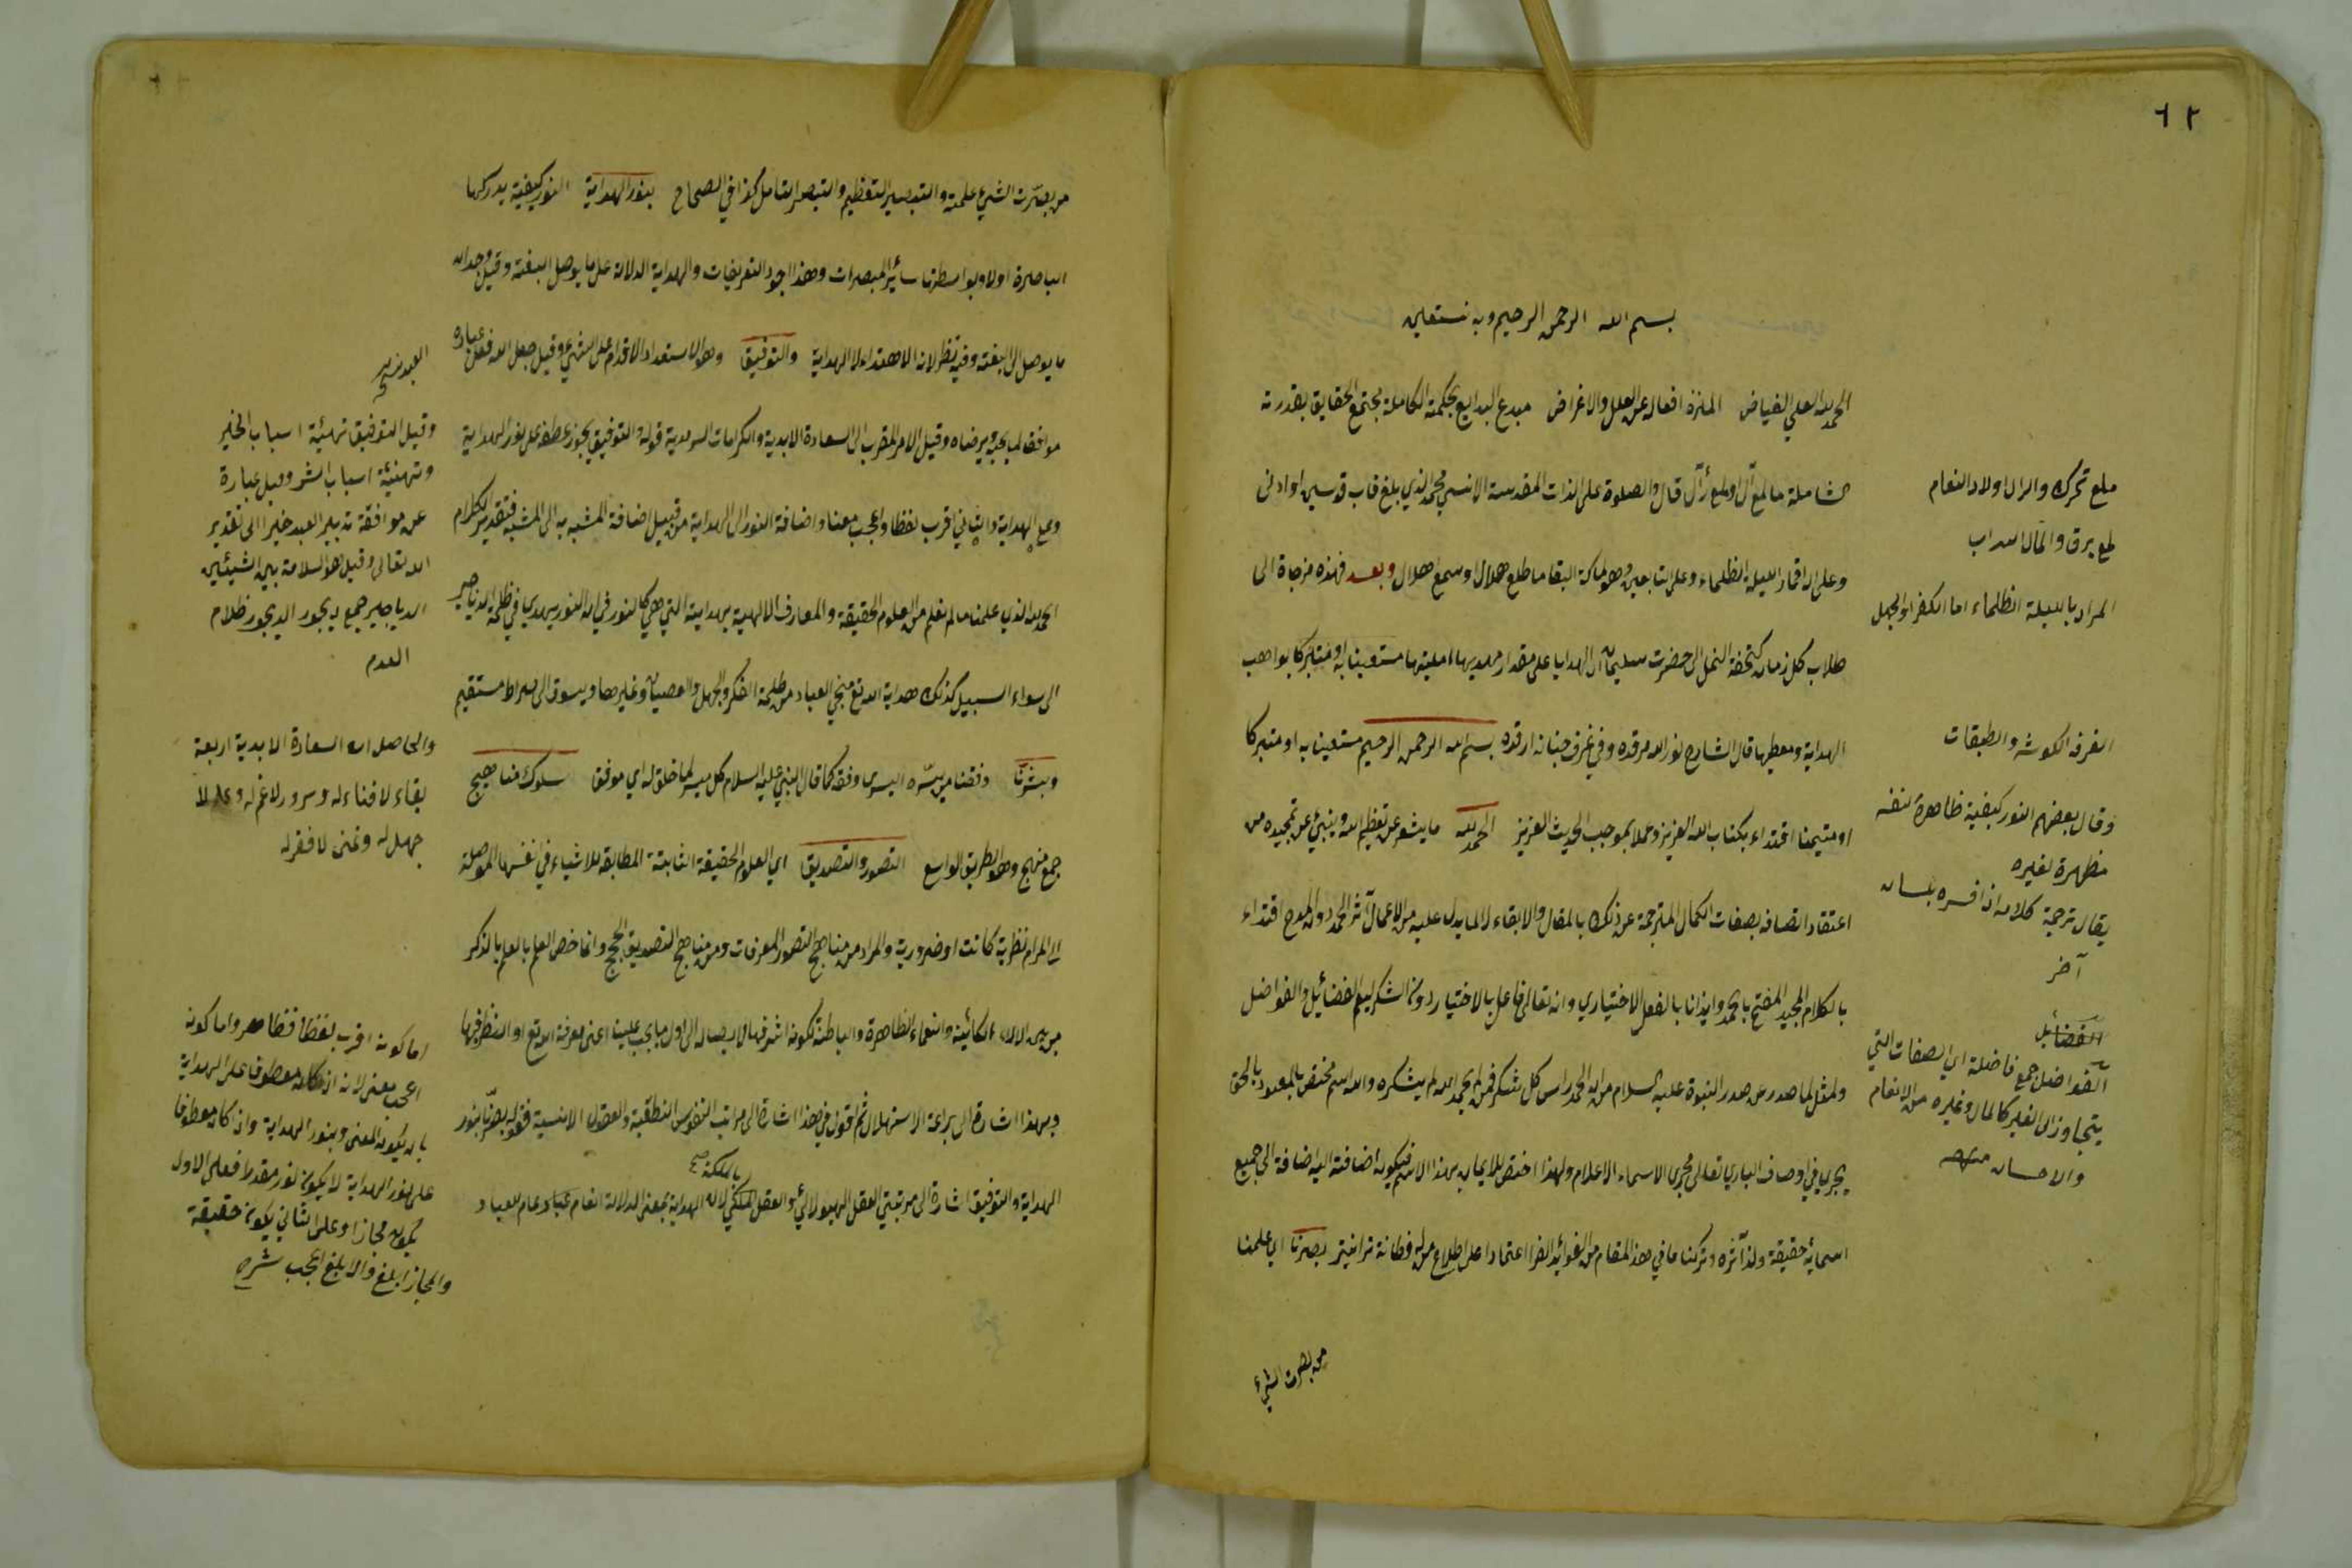 ٦٢
بسم الله الرحمن الرحيم وبه نستعين
الحمد لله العلي الفياض المنزه افعاله عن العلل والاغراض مبدع البدايع بحكمته الكاملة بقدرته
الشاملة ما لمع آل اولمع رأل قال والصلوة على الذات المقدسة الانسي محمد الذي بلغ قاب قوسين او ادنى
وعلى اله اقمار الليلة الظلماء وعلى التابعين البقا ما طلع هلال وسمع اهلال وبعد فهذه مزجاة الى
طلاب كل زمان كتحفة النمل الى حضرت سليمان ان الهدايا على مقدار مهديها مستعينا به او متبركا بواهب
الهداية ومعطيها قال الشارح نور الله مرقده وفي غرف جنانه ارقده بسم الله الرحمن الرحيم مستعينا به او متبركا
او متيمنا اقتداء بكتاب الله العزيز وعملا بموجب الحديث العزيز الحمد لله ما يشعر عن تعظيم الله وينبئ عن تمجيده من
اعتقاد اتصافه بصفات الكمال المترجمة عن ذلك بالمقال والابقاء لما يدل عليه من الاعمال آثر الحمد دون المدح اقتداء
بالكلام المجيد المفتتح بالحمد وايذانا بالفعل الاختياري وانه تعالى فاعل بالاختيار دون الشكر ليعم الفضائل والفواضل
ولمثل لما صدر عن صدر النبوة عليه السلام من ان الحمد راس كل شكر فمن لم يحمد الله لم يشكره والله اسم مختص بالمعبود بالحق
يجري في اوصاف الباري تعالى مجرى الاسماء الاعلام ولهذا اختص الايمان بهذا الاسم فيكون اضافته اليه اضافة الى جميع
اسمائه حقيقة ولذا آثره وتركنا ما في هذا المقام من الفوائد اعتمادا على اطلاع من له فطانة بصرنا اي علمنا
من بصرت الشيء
ملع تحرك والرال اولاد النعام
لمع برق والآل السراب
المراد بالليلة الظلماء اما الكفر او الجهل
الغرفة الكوشه والطبقات
وقال بعضهم النور كيفية ظاهرة بنفسه
مظهرة لغيره
يقال ترجمة كلامه اذا فسره بلسان
آخر
الفضائل
الفواضل جمع فاضلة اي الصفات التي
يتجاوز الى الغير كالمال وغيره من الانعام
والاحسان
من بصرت الشيء علمته والتبصير التعظيم والتبصر التامل كذا في الصحاح بنور الهداية النور كيفية يدركها
الباصرة اولا وبواسطتها سائر المبصرات وهذا اجود التعريفات والهداية الدلالة على ما يوصل البغية وقيل وجدان
ما يوصل الى البغية وفيه نظر لانه الاهتداء لا الهداية والتوفيق وهو الاستعداد الاقدام على الشيء وقيل جعل الله فعل عباده
موافقا لما يحبه ويرضاه وقيل الامر المقرب الى السعادة الابدية والكرامات السرمدية قوله والتوفيق يجوز عطفه على نور الهداية
وعلى الهداية والثاني اقرب لفظا واعجب معنا واضافة النور الى الهداية من قبيل اضافة المشبه به الى المشبه فتقدير الكلام
الحمد لله الذي علمنا ما لم نعلم من العلوم الحقيقة والمعارف الالهية بهدايته التي هي كالنور في ان النور يهدي في ظلمة الدياجير
الى سواء السبيل كذلك هداية الله تع منجي العباد من ظلمة الفكر والجهل والعصيان وغيرها ويسوق الى صراط مستقيم
ويسرنا وفقنا من يسره اليسرى وفقه كما قال النبي عليه السلام كل ميسر لما خلق له اي موفق سلوك مناهج
جمع منهج وهو الطريق الواسع التصور والتصديق اي العلوم الحقيقة الثابتة المطابقة للاشياء في انفسها الموصلة
الى المرام نظرية كانت او ضرورية والمراد من مناهج التصور المعرفات ومن مناهج التصديق الحجج وانما خص العلم بالعلم بالذكر
من بين الالاء الكائنة والنعماء الظاهرة والباطنة لكونه اشرفها الى اول ما يجب علينا اعني معرفة الله تع او النظر فيها
وبهذا اشارة الى براعة الاستهلال ثم اقول في هذا اشارة الى مراتب النفوس النطقية والعقول الانسية فقوله بصرنا بنور
بالملكة صح
الهداية والتوفيق اشارة الى مرتبتي العقل الهيولاني والعقل الملكي لان الهداية بمعنى الدلالة انعام عام للعباد
العبد نسخه
وقيل التوفيق تهيئة اسباب الخير
وتهيئة اسباب الشر وقيل عبارة
عن موافقة تدبير العبد خيرا الى تقدير
الله تعالى وقيل هو السلامة بين الشيئين
الدياجير جمع ديجور الديجور ظلام
العدم
والحاصل ان السعادة الابدية اربعة
بقاء لا فناء له وسرور لا غم له وعلم لا
جهل له وغنى لا فقر له
اما كونه اقرب لفظا فظاهر واما كونه
اعجب معنى لانه اذا كان معطوفا على الهداية
بان يكون المعنى وبنور الهداية وان كان معطوفا
على نور الهداية لا يكون نور مقدرا فعلى الاول
يكون مجازا وعلى الثاني يكون حقيقة
والمجاز ابلغ والابلغ اعجب شرح